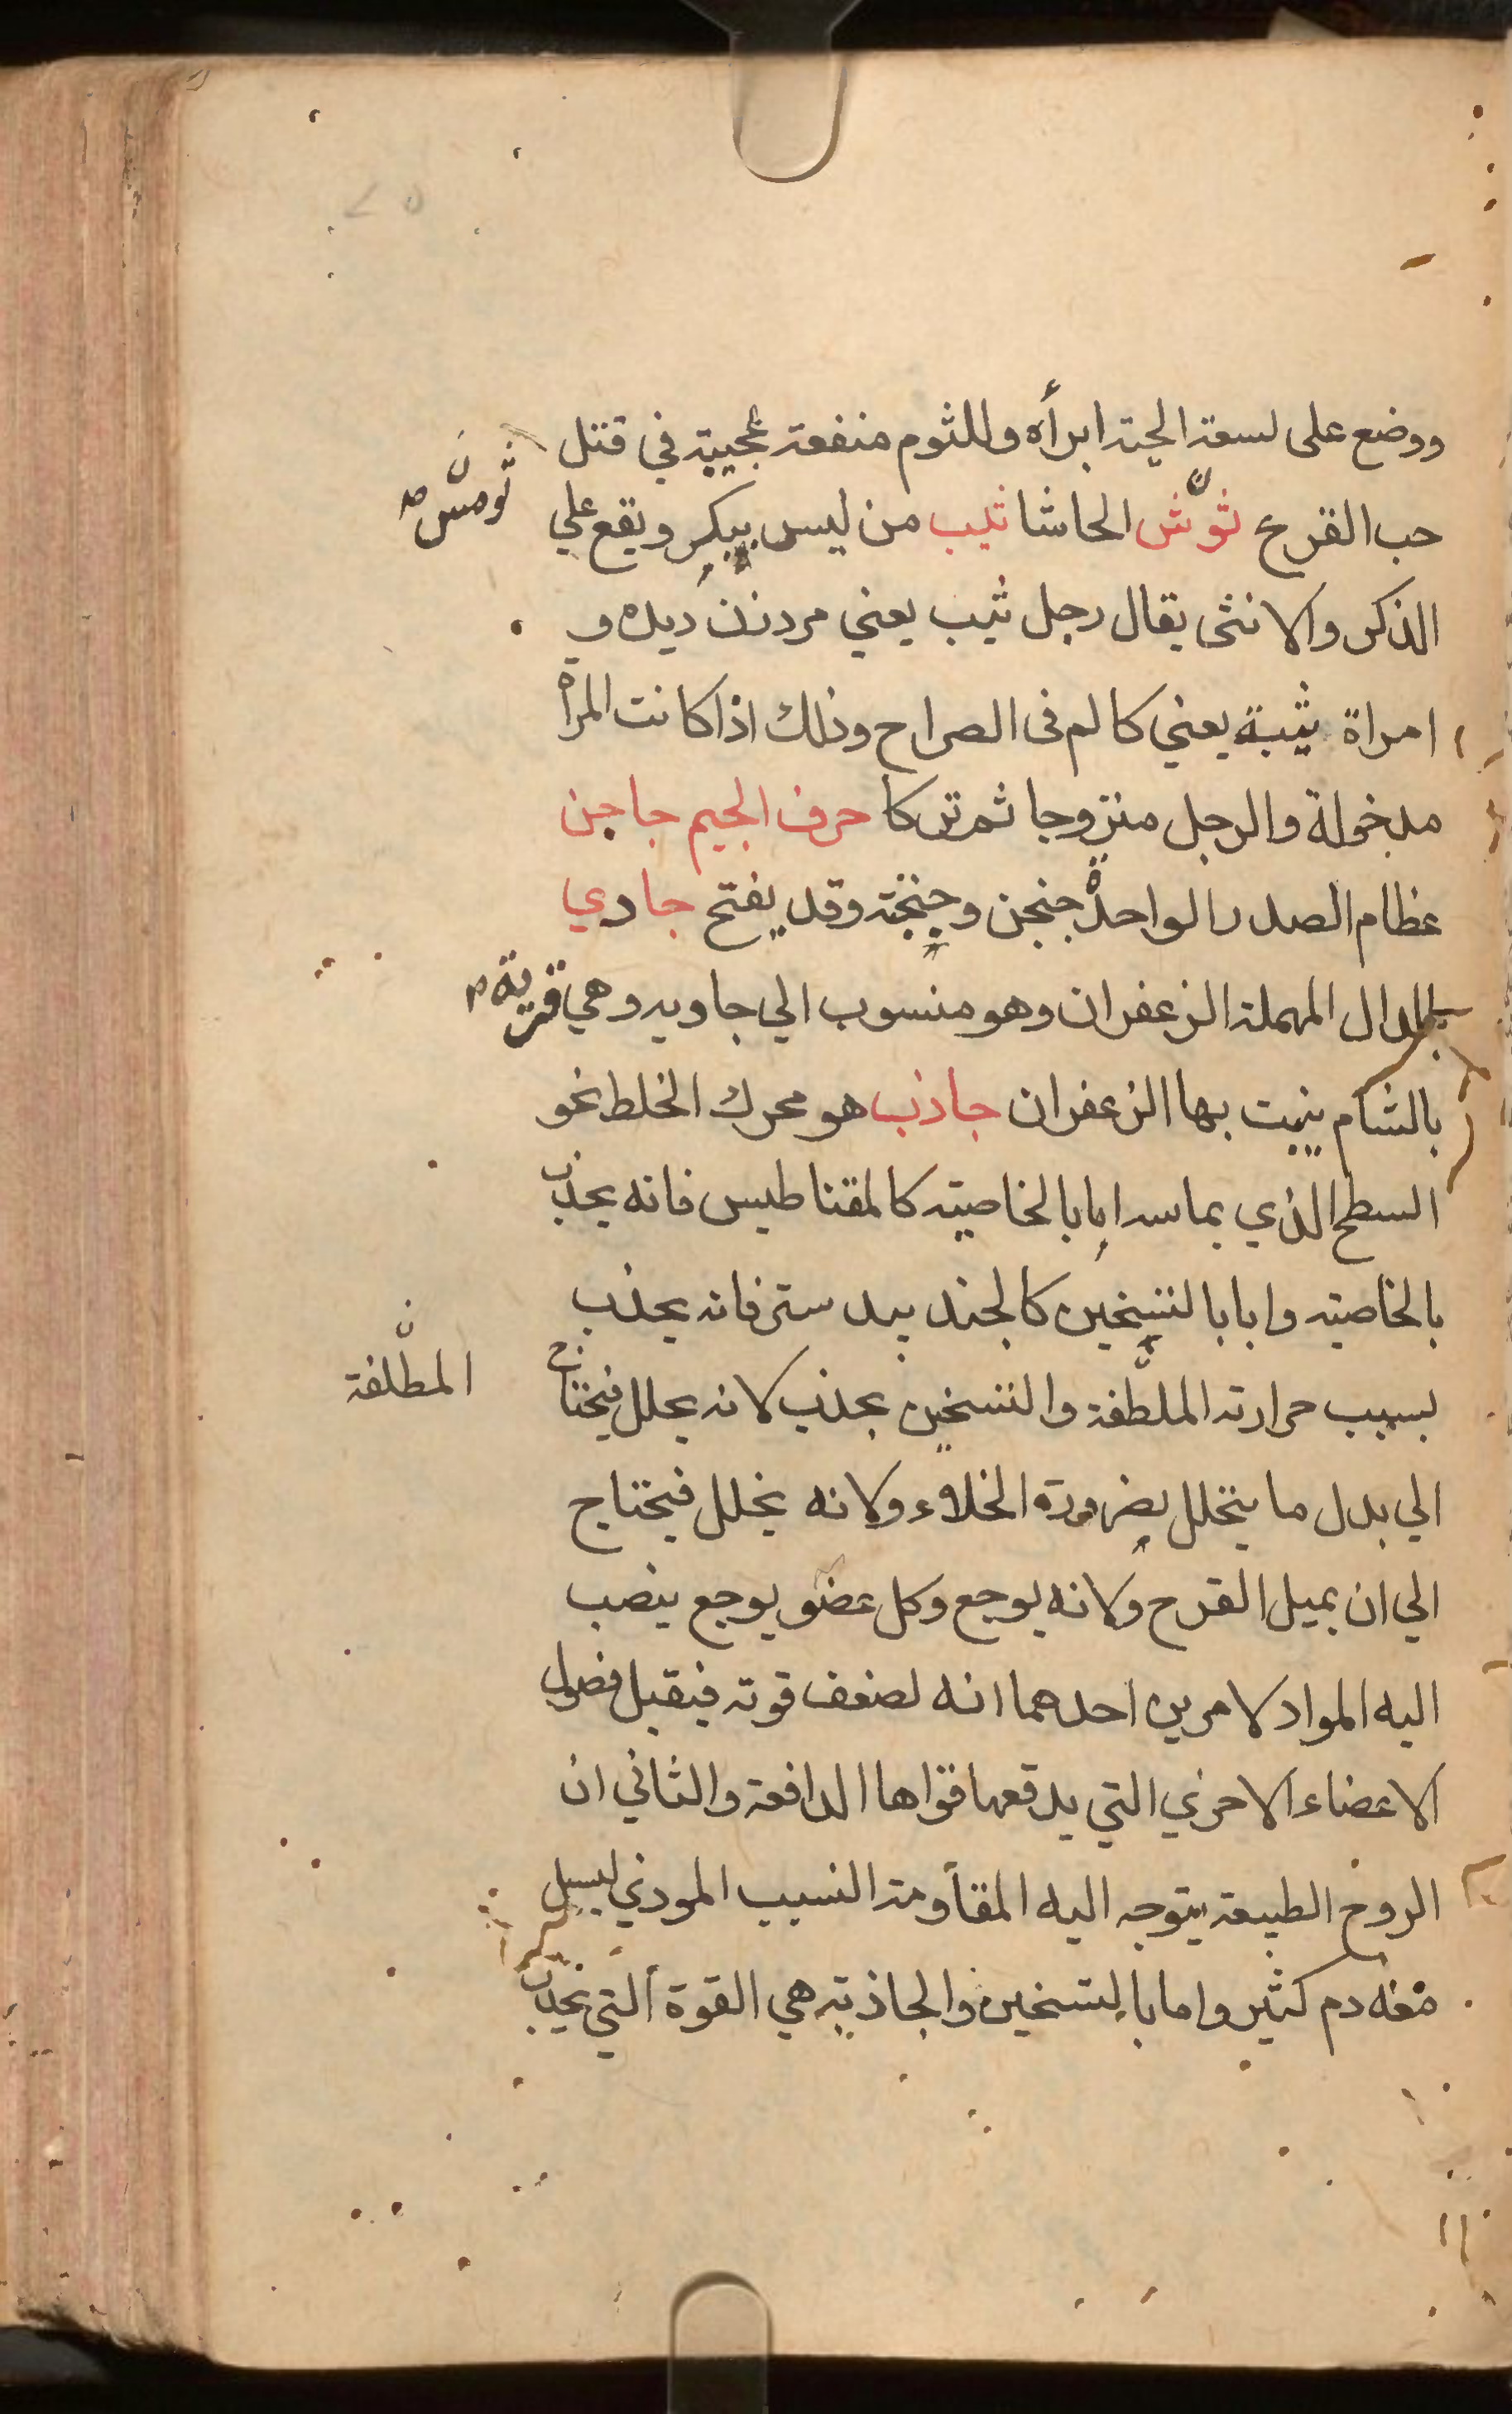 ووضع على لسعة الحية ابرأه وللثوم منفعة عجيبة في قتل
حب القرع ثوّش الحاشا ثيب من ليس ببكر ويقع علي
ثومس صح
الذكر والانثى يقال رجل ثيب يعني مرد زن ديده و
امراة ثيبة يعني كالم فى الصراح وذلك اذا كانت المرأة
مدخولة والرجل متزوجا ثم تركا حرف الجيم جاجن
عظام الصدر الواحدة جنجن وجنجنة وقد يفتح جادي
بالدال المهملة الزعفران وهو منسوب الي جاويه وهي قرية
بالشام ينبت بها الزعفران جاذب هو محرك الخلط نحو
السطح الذي يماسه اما بالخاصية كالمقناطيس فانه يجذب
بالخاصية واما بالتسخين كالجندبيدستر فانه يجذب
بسبب حرارته الملطّفة والتسخين يجذب لانه يحلل فيحتاج
المطلفة
الي بدل ما يتحلل بضرورة الخلاء ولانه يخلل فيحتاج
الي ان يميل القرح ولانه يوجع وكل عضو يوجع ينصب
اليه المواد لامرين احدهما انه لضعف قوته فيقبل فضول
الاعضاء الاخري التي يدفعها قواها الدافعة والثاني ان
الروح الطبيعة يتوجه اليه المقاومة السبب الموذي ليسيل
معه دم كثير واما بالتسخين والجاذبة هي القوة التي تجذب